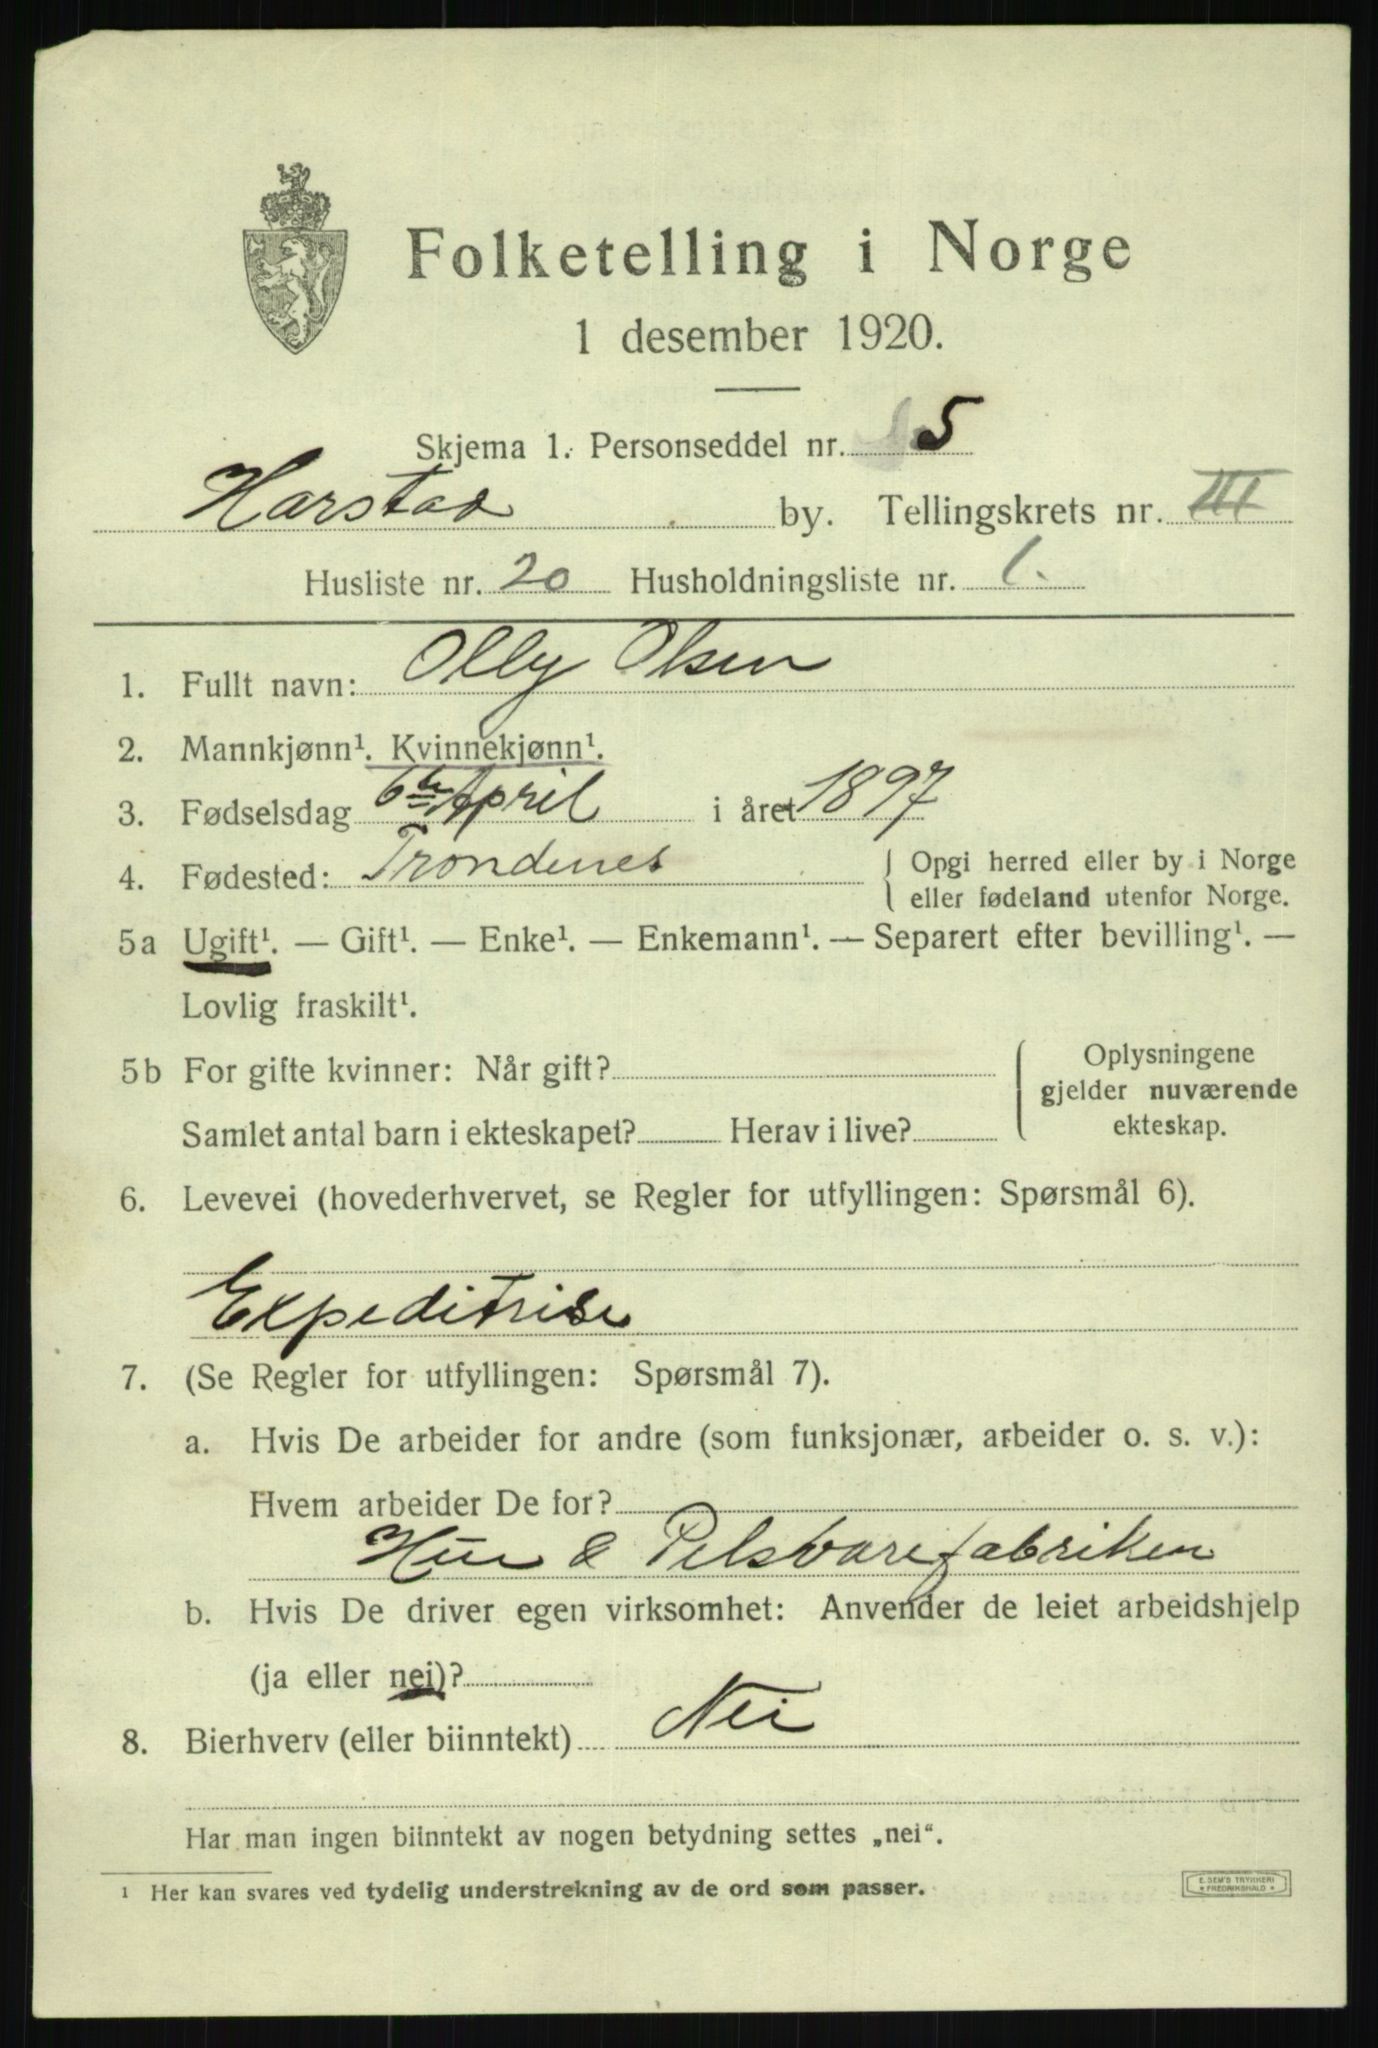 Folketelling i Norge
1 desember 1920.
Skjema 1. Personseddel nr. 5
Harstad by. Tellingskrets nr. III
Husliste nr. 20 Husholdningsliste nr. 1.
1. Fullt navn: Olly Olsen
2. Mannkjønn¹. Kvinnekjønn¹.
3. Fødselsdag 6te April i året 1897
4. Fødested: Trondenes { Opgi herred eller by i Norge
eller fødeland utenfor Norge.
5a Ugift¹. — Gift¹. — Enke¹. — Enkemann¹. — Separert efter bevilling¹. —
Lovlig fraskilt¹.
5b For gifte kvinner: Når gift?
Samlet antal barn i ekteskapet? Herav i live?
Oplysningene
gjelder nuværende
ekteskap.
6. Levevei (hovederhvervet, se Regler for utfyllingen: Spørsmål 6).
Expeditrise
7. (Se Regler for utfyllingen: Spørsmål 7).
a. Hvis De arbeider for andre (som funksjonær, arbeider o. s. v.):
Hvem arbeider De for?
Hue & Pelsvarefabriken
b. Hvis De driver egen virksomhet: Anvender de leiet arbeidshjelp
(ja eller nei)?
8. Bierhverv (eller biinntekt) Nei
Har man ingen biinntekt av nogen betydning settes „nei“.
¹ Her kan svares ved tydelig understrekning av de ord som passer.
E. SEM'S TRYKKERI
* FREDRIKSHALD *